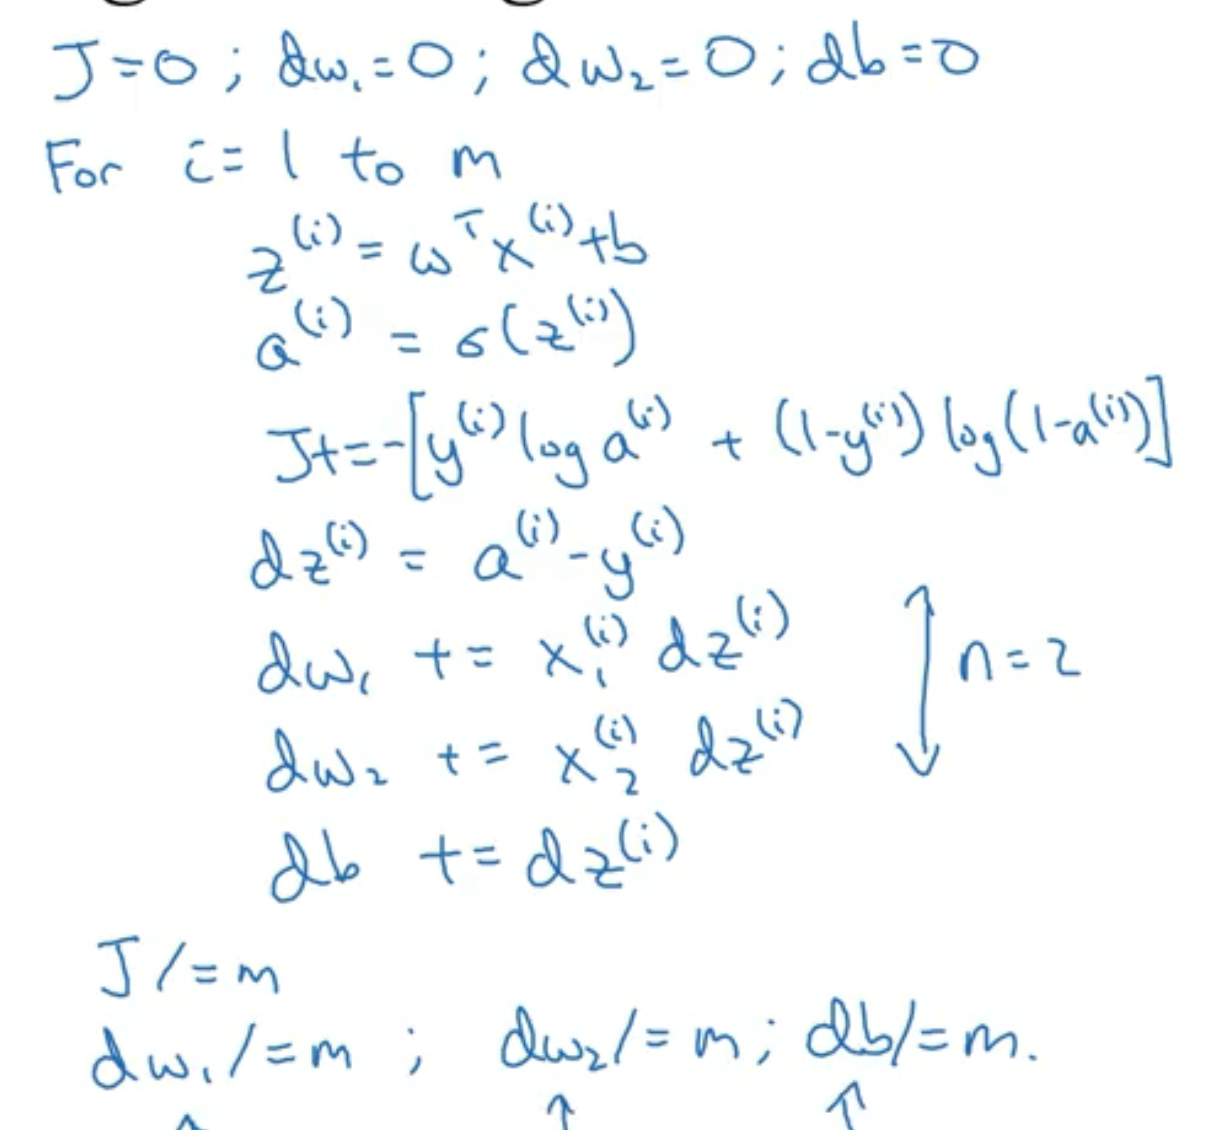 J=0; dw₁=0; dw₂=0; db=0
For i=1 to m
z⁽ⁱ⁾ = wᵀx⁽ⁱ⁾+b
a⁽ⁱ⁾ = σ(z⁽ⁱ⁾)
J+=-[y⁽ⁱ⁾ log a⁽ⁱ⁾ + (1-y⁽ⁱ⁾) log(1-a⁽ⁱ⁾)]
dz⁽ⁱ⁾ = a⁽ⁱ⁾-y⁽ⁱ⁾
dw₁ += x₁⁽ⁱ⁾ dz⁽ⁱ⁾
n=2
dw₂ += x₂⁽ⁱ⁾ dz⁽ⁱ⁾
db += dz⁽ⁱ⁾
J/=m
dw₁/=m; dw₂/=m; db/=m.